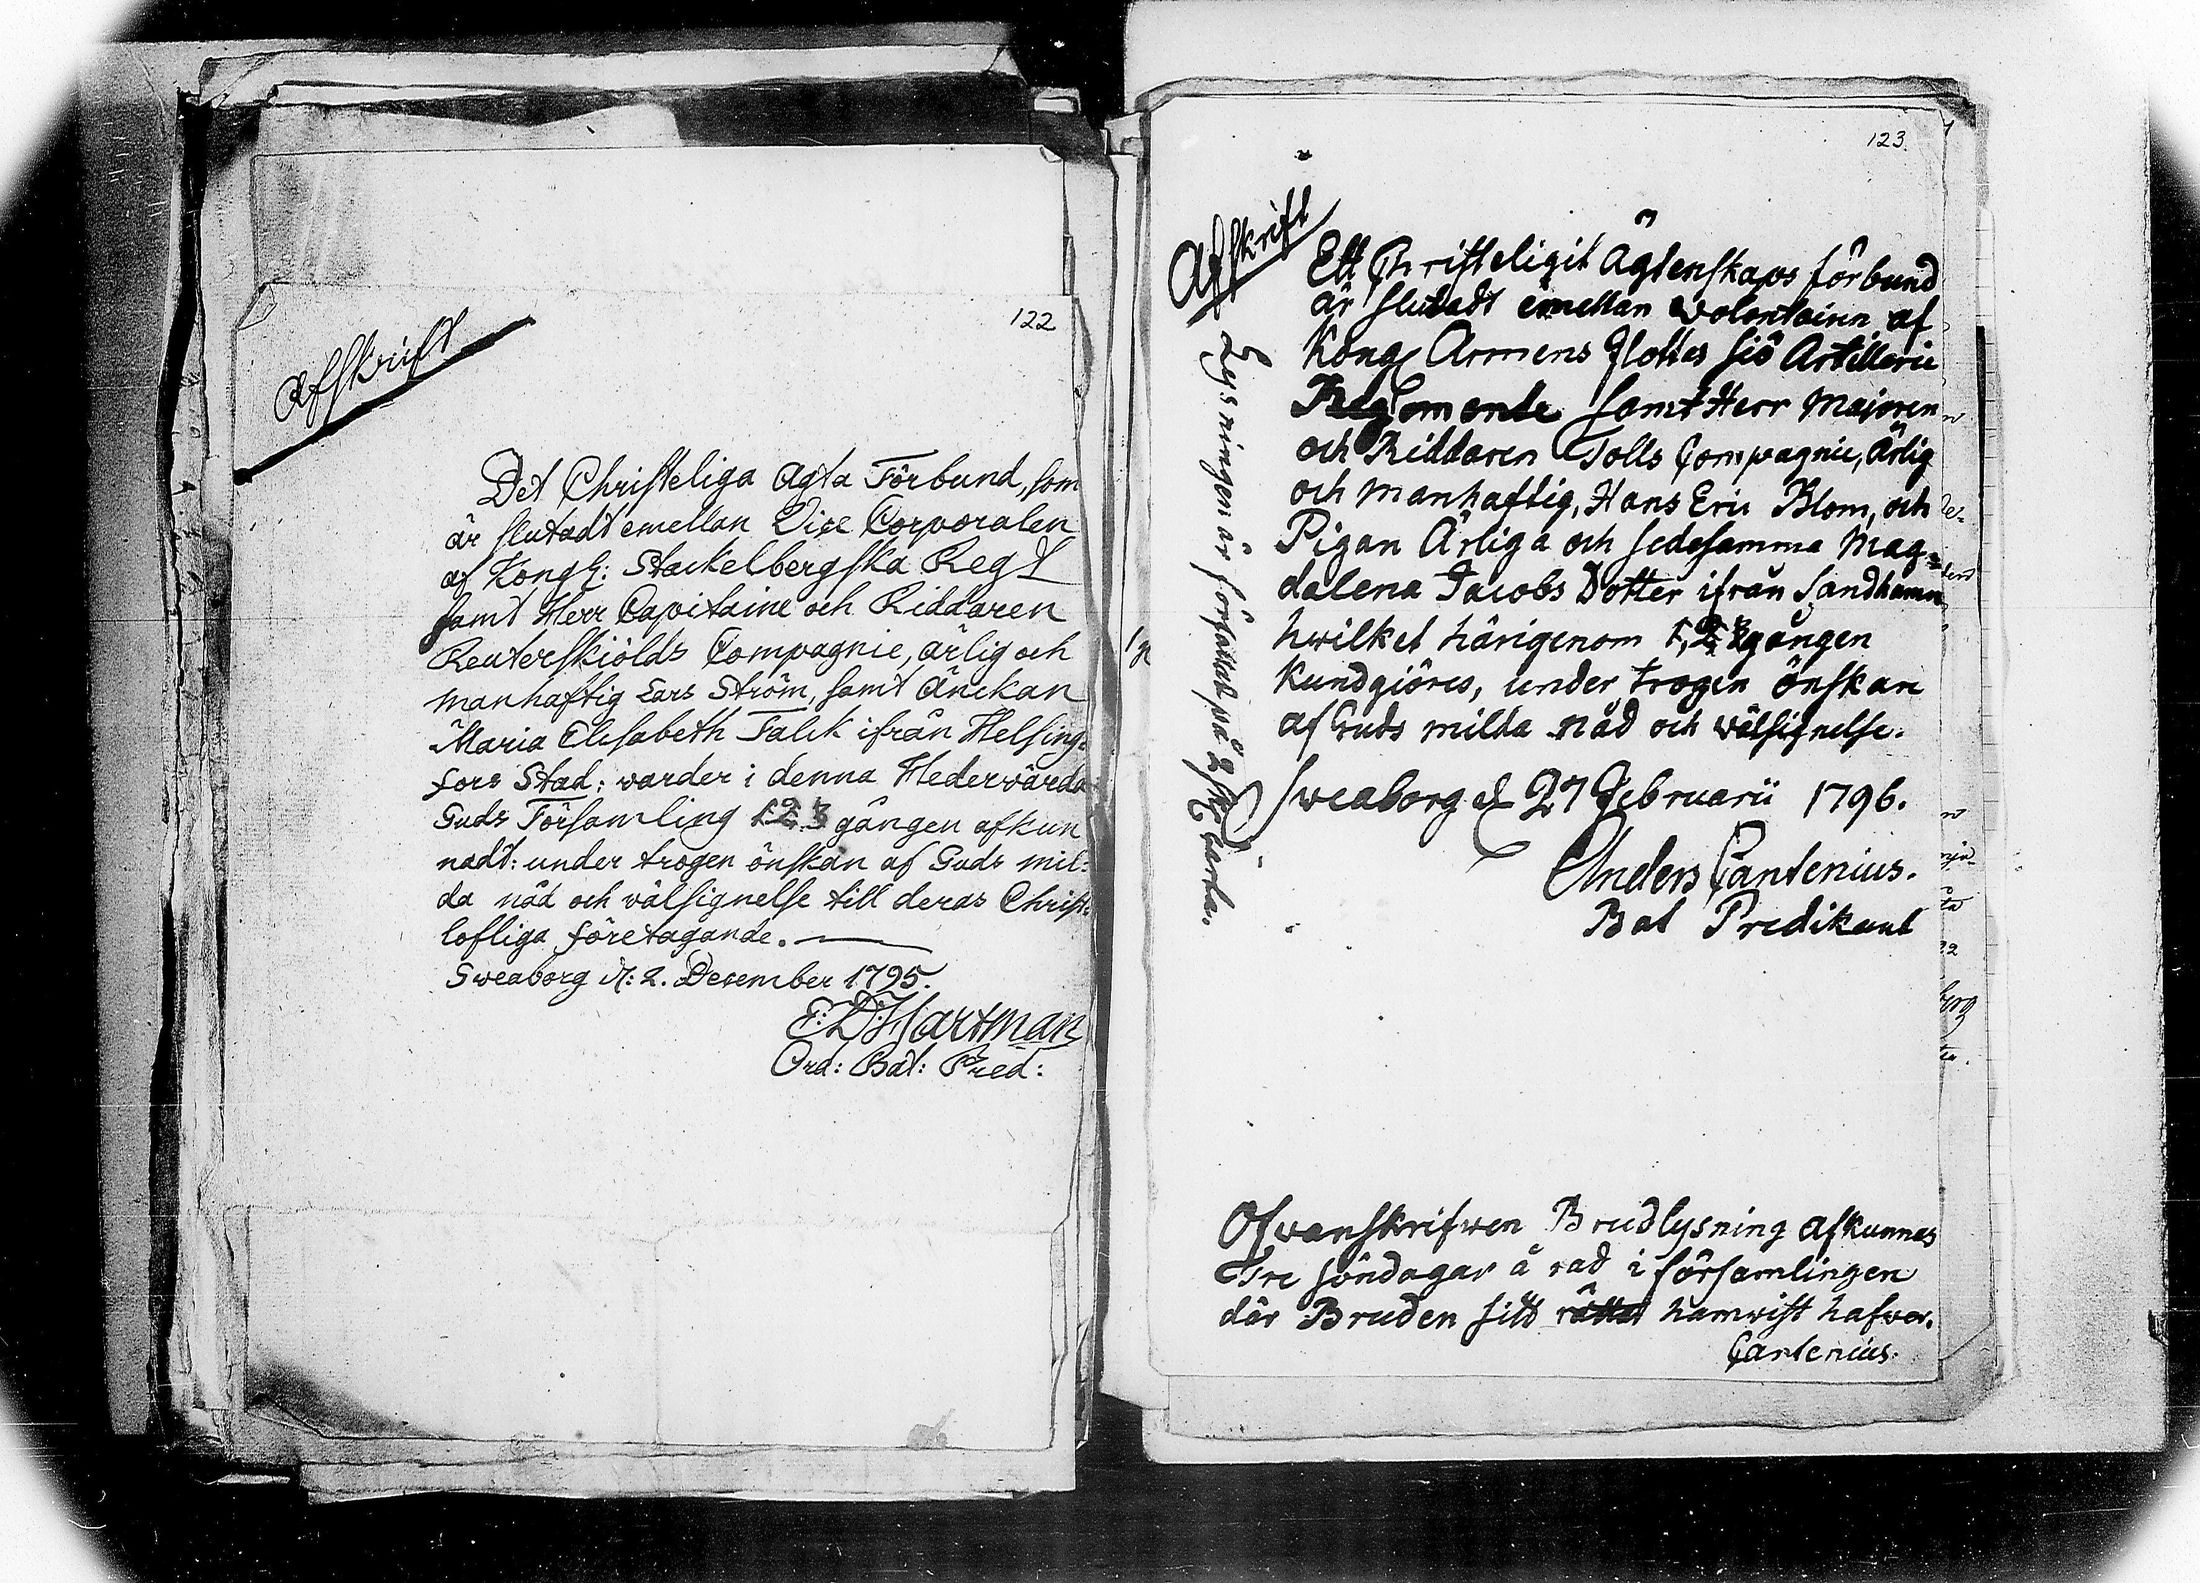 122
Afskrift
Det Christeliga Agta Förbund, som
är slutadt emellan Vice Corporalen
af Kongl: Stackelbergska Regt
samt Herr Capitaine och Riddaren
Reuterskiölds Compagnie, ärlig och
manhaftig Lars Ström, samt Änckan
Maria Elisabeth Falck ifrån Helsing-
fors Stad: warder i denna Hedervärda
Guds Församling 1 2 3 gången afkun
nadt: under trogen önskan af Guds mil-
da nåd och välsignelse till deras Christ:
lofliga företagande.
Sweaborg d: 2. December 1795.
E: D: Hartman
Ord: Bat: Pred:
123.
Afskrift
Ett Christeligit Ägtenskaps förbund
är slutadt emellan Volontairen af
Kongl Armens Flottes Siö Artillerie
Regemente samt Herr Majoren
och Riddaren Tolls Compagnie, Ärlig
och manhaftig, Hans Eric Blom, och
Pigan Ärliga och sedesamma Mag-
dalena Jacobs Dotter ifrån Sandhamn
hwilket härigenom 1, 2 3 gången
Kundgiöres, under trogen önskan
af Guds milda nåd och wälsignelse.
Sweaborg d 27 Februarii 1796.
Anders Cantenius.
Bat Predikant
Lysningen är författad på 2 sk
Ofvanskrifwen Brudlysning afkunnas
Tre söndagar å rad i församlingen
där Bruden sitt hamwist hafwer.
Cantenius.